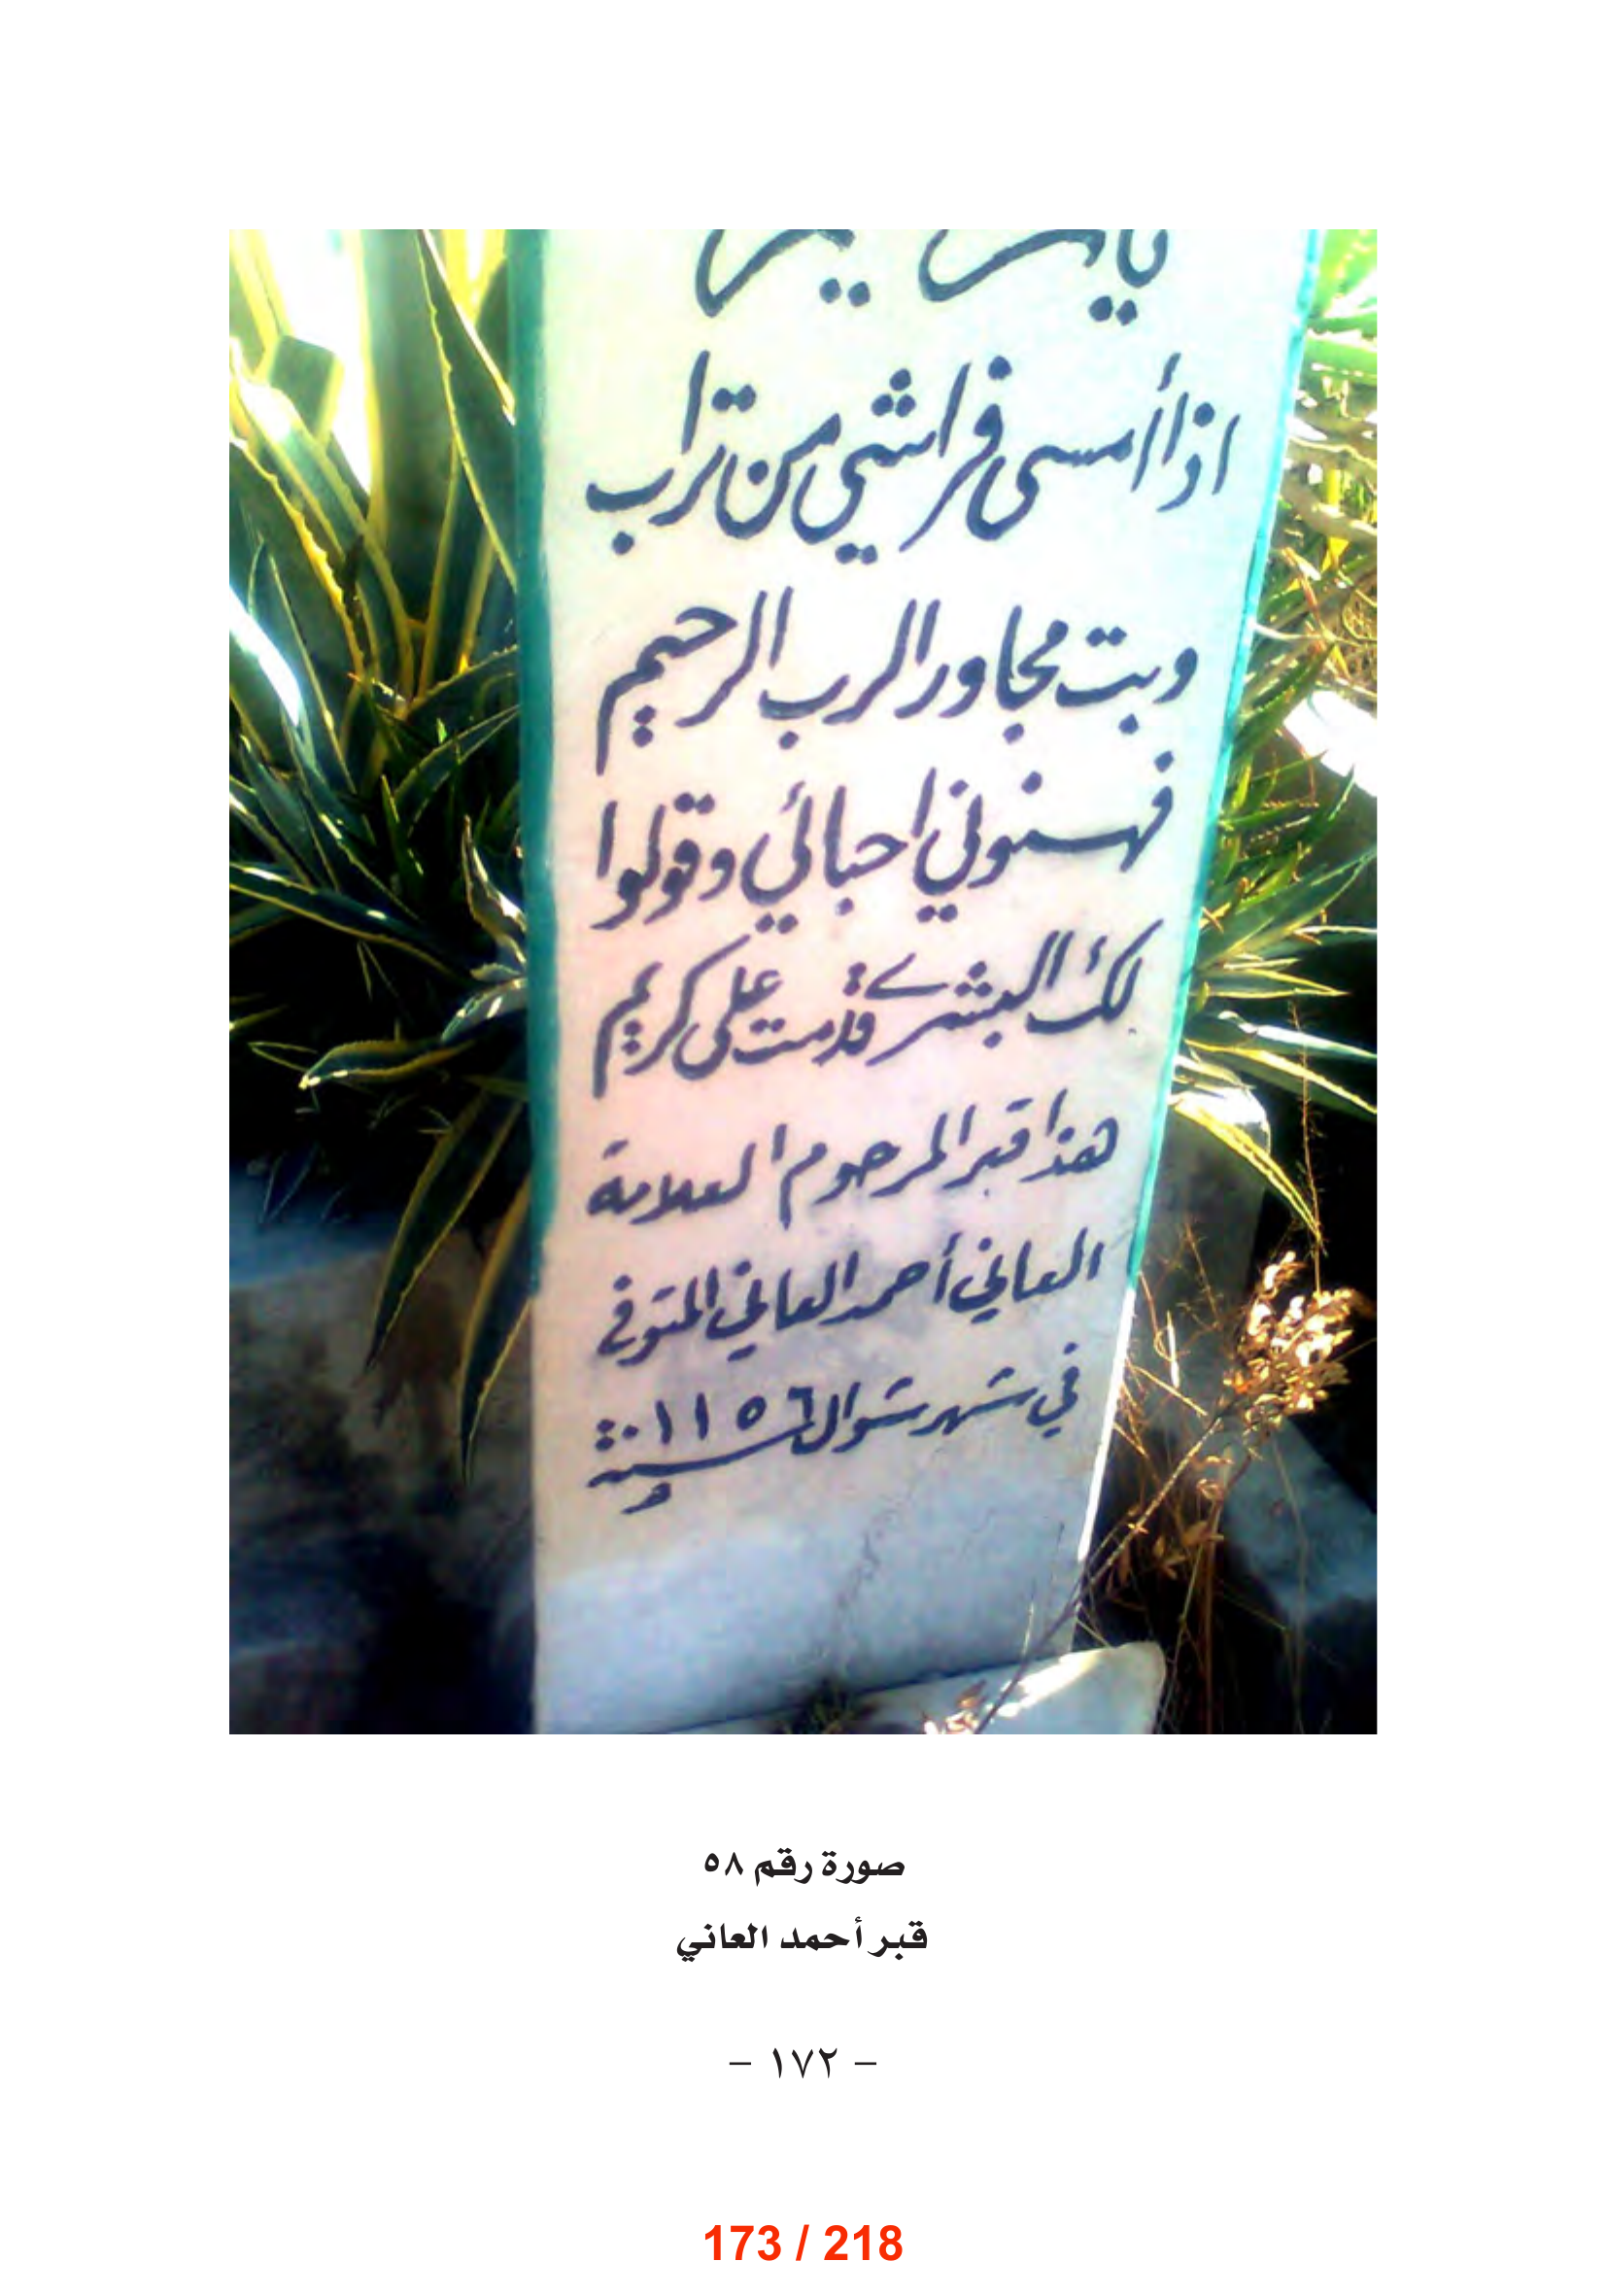 اذا أمسى فراشي من تراب
وبت مجاور الرب الرحيم
فهنوني احبائي وقولوا
لك البشرى قدمت على كريم
هذا قبر المرحوم العلامة
العاني أحمد العاني المتوفى
في شهر شوال سنة ١١٥٦ه
صورة رقم ٥٨
قبر أحمد العاني
- ١٧٢ -
173 / 218